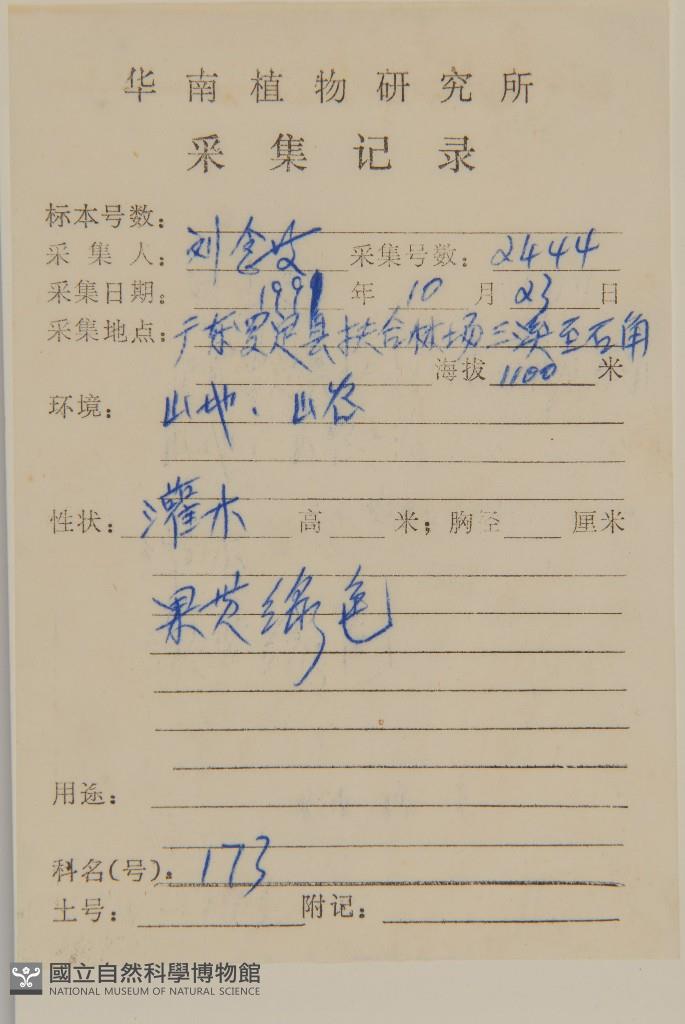 华南植物研究所
采集记录
标本号数：
采集人：刘念 采集号数：2444
采集日期。1991年10月23日
采集地点：广东罗定县扶合林场三渓至石角
海拔1100米
环境：山地．山谷
性状：灌木 高 米；胸径 厘米
果黄绿色
用途：
科名(号)：173
土号： 附记：
國立自然科學博物館
NATIONAL MUSEUM OF NATURAL SCIENCE